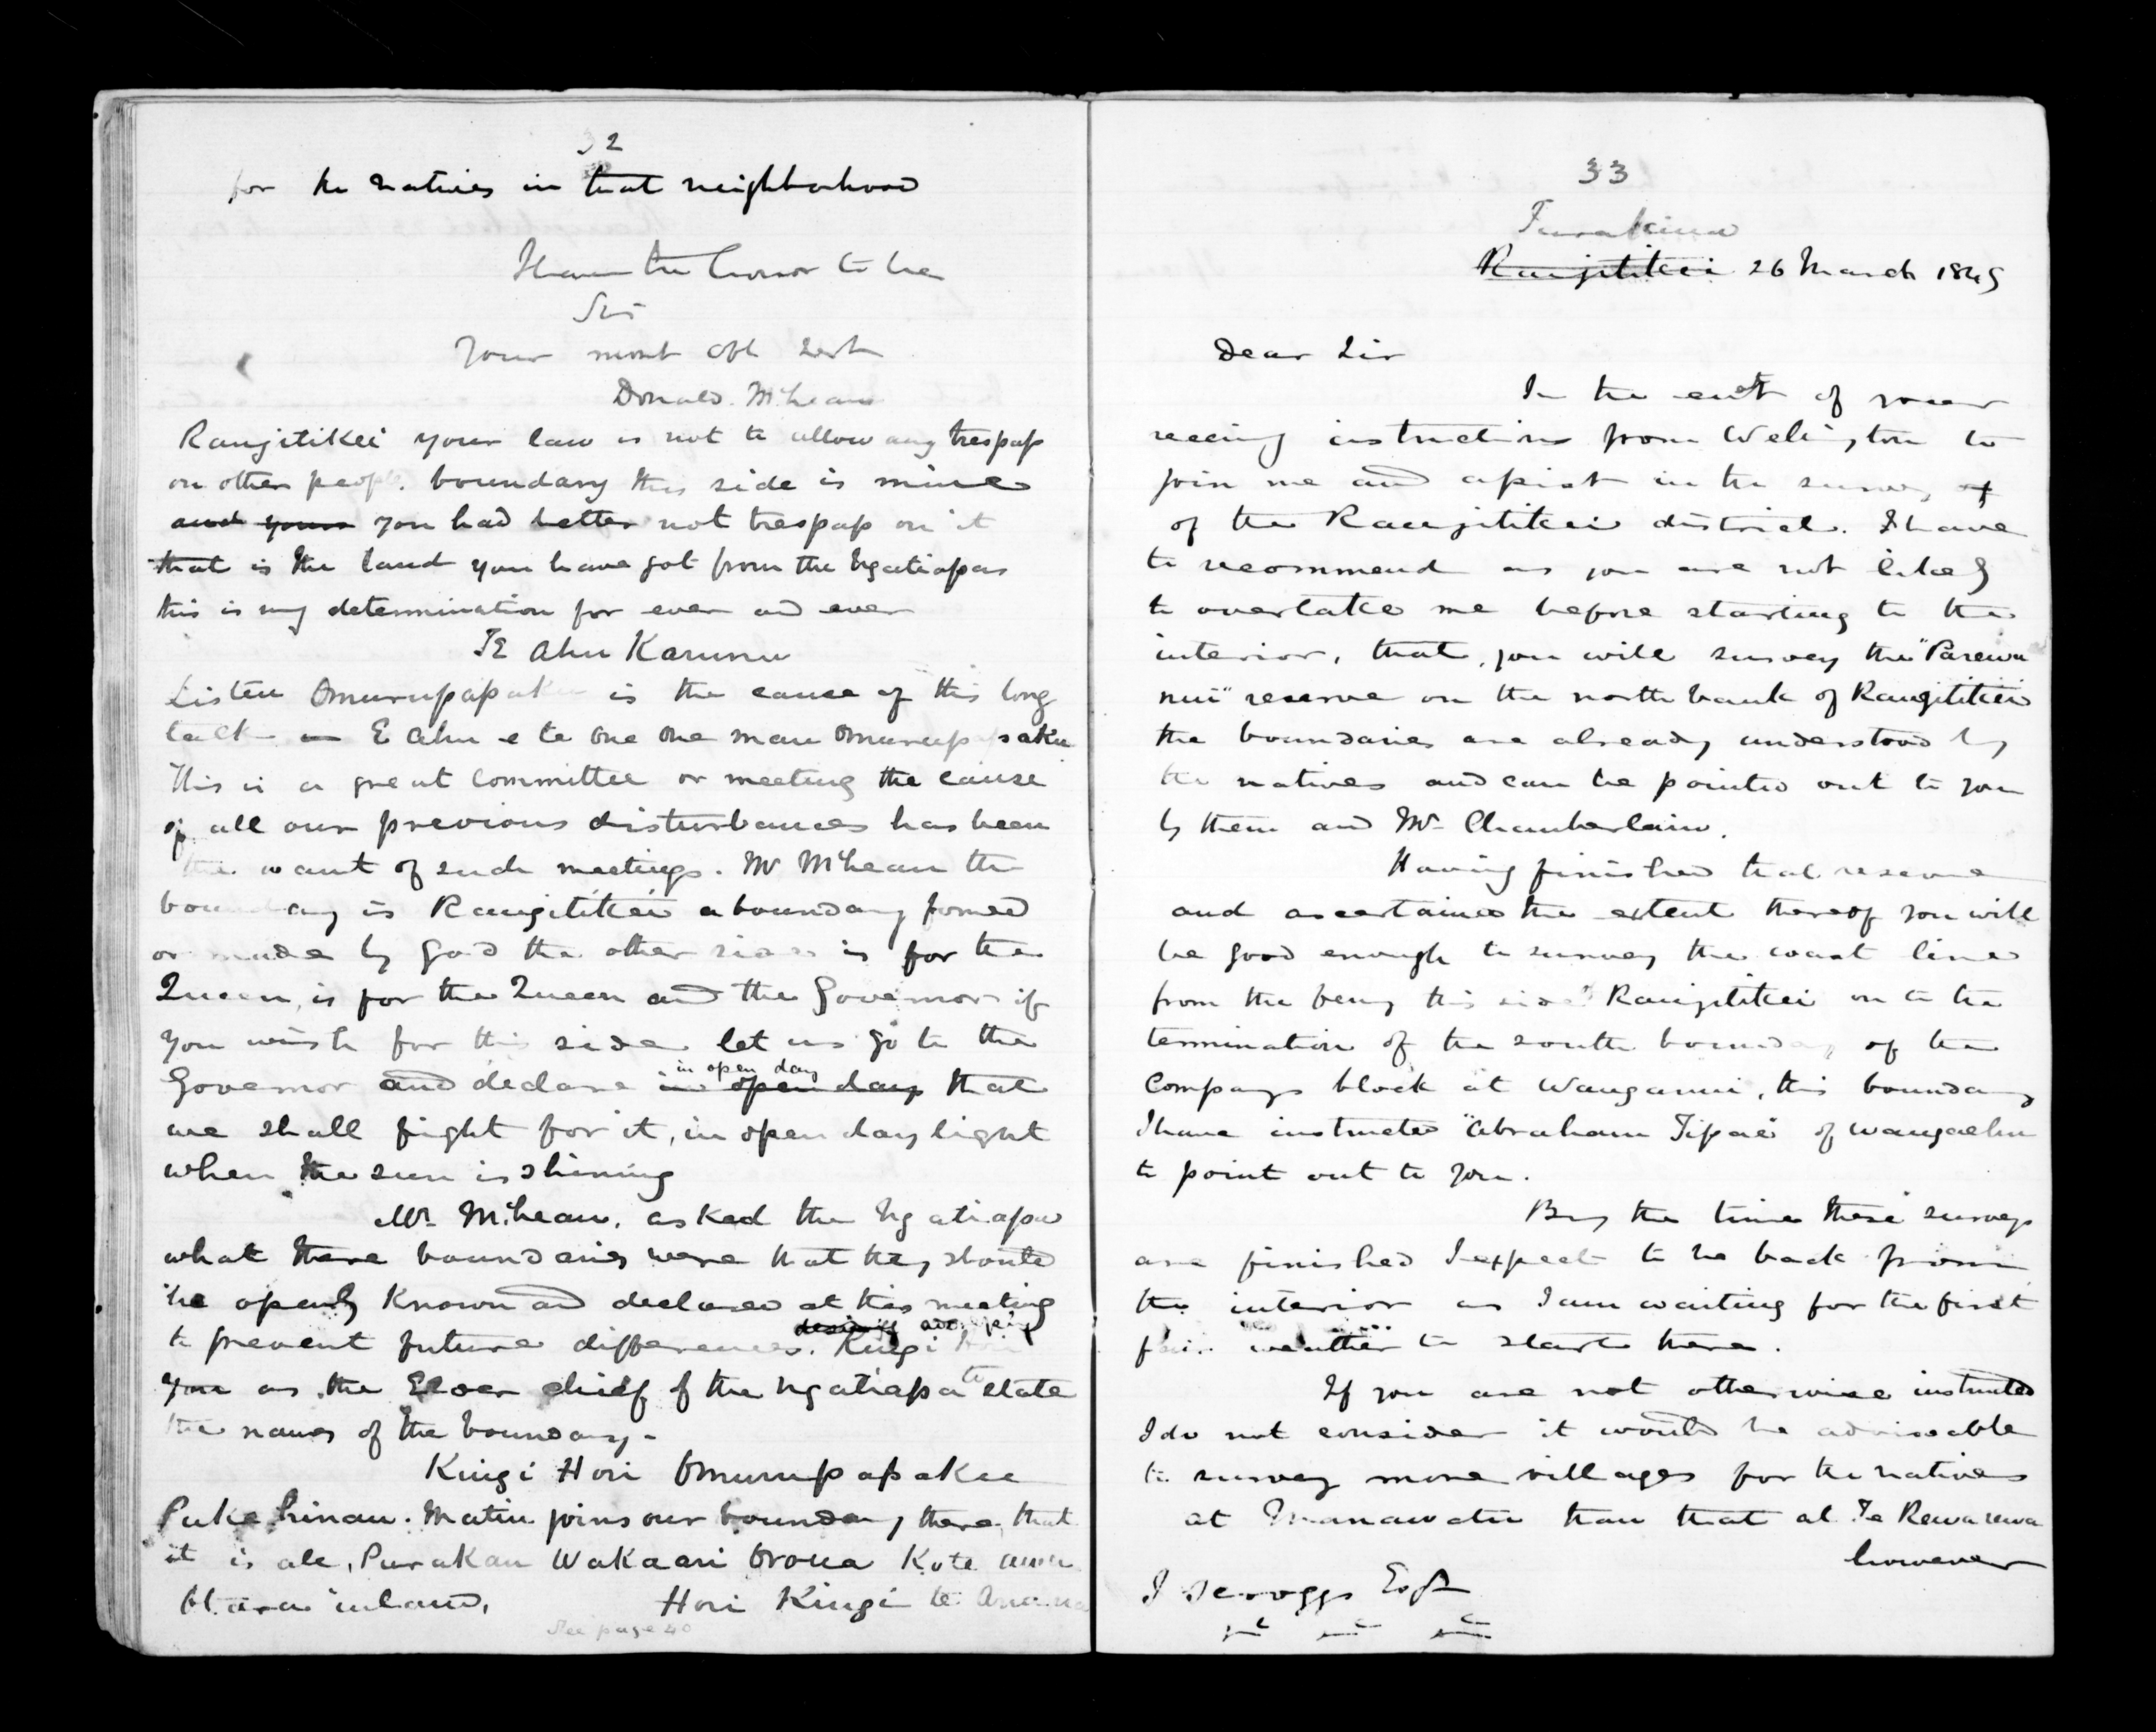 32
for the natives in that neighborhood
I have the honor to be
Sir
Your most obt Servt
Donald McLean
Rangitikei your law is not to allow any trespass
on other people. boundary this side is mine
and yours you had better not trespass on it
that is the land you have got from the Ngatiapas
this is my determination for ever and ever
TE Ahu Karumu
Listen Omurupapaku is the cause of this long
talk E Ahu e te one one man Omurupapaku
This is a great committee or meeting the cause
of all our previous disturbances has been
the want of such meetings. Mr McLean the
boundary is Rangitikei a boundary formed
or made by God the other side is for the
Queen, is for the Queen and the Governor if
you wish for this side let us go to the
Governor and declare in open day in open day that
we shall fight for it, in open day light
when the sun is shining
Mr. McLean. asked the Ngatiapa
what there boundaries were that they should
be openly known and declared at this meeting
to prevent future differences. Kingi Hori
you as the Elder chief of the Ngatiapa to state
the names of the boundary-
Kingi Hori Omurupapakee
Puke hinau. Matiu joins our boundary there, that
it is all, Purakau Wakaari Oroua Kote
Otara inland, Hori Kingi te Anaua
See page 40
33
Turakina
Rangitikei 26 March 1849
Dear Sir
In the evt of your
receing instructions from Welington to
join me and assist in the survey of
of the Rangitikei district. I have
to recommend as you are not likely
to overtake me before starting to the
interior, that, you will survey the "Parewa
nui" reserve on the north bank of Rangitikei
the boundaries are already understood by
the natives and can be pointed out to you
by them and Mr Chamberlain.
Having finished that reserve
and ascertained the extent thereof you will
be good enough to survey the coast line
from the ferry this side Rangitikei on to the
termination of the south boundary of the
Companys block at Wanganui, this boundary
I have instructed "Abraham Tipae" of Wangaehu
to point out to you.
By the time these surveys
are finished I expect to be back from
the interior as I am waiting for the first
fair weather to start there.
If you are not otherwise instructed
I do not consider it would be adviseable
to survey more villages for the natives
at Manawatu than that at Te Rewarewa
however
I Scroggs Esqr